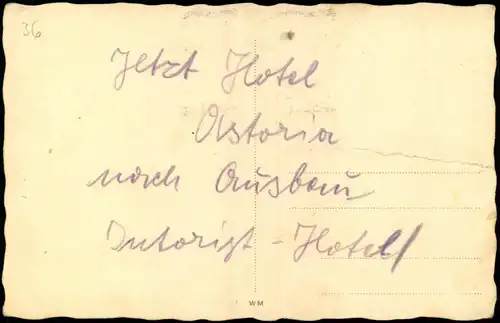 36
Jetzt Hotel
Astoria
nach Ausbau
Intorist - Hotel
WM